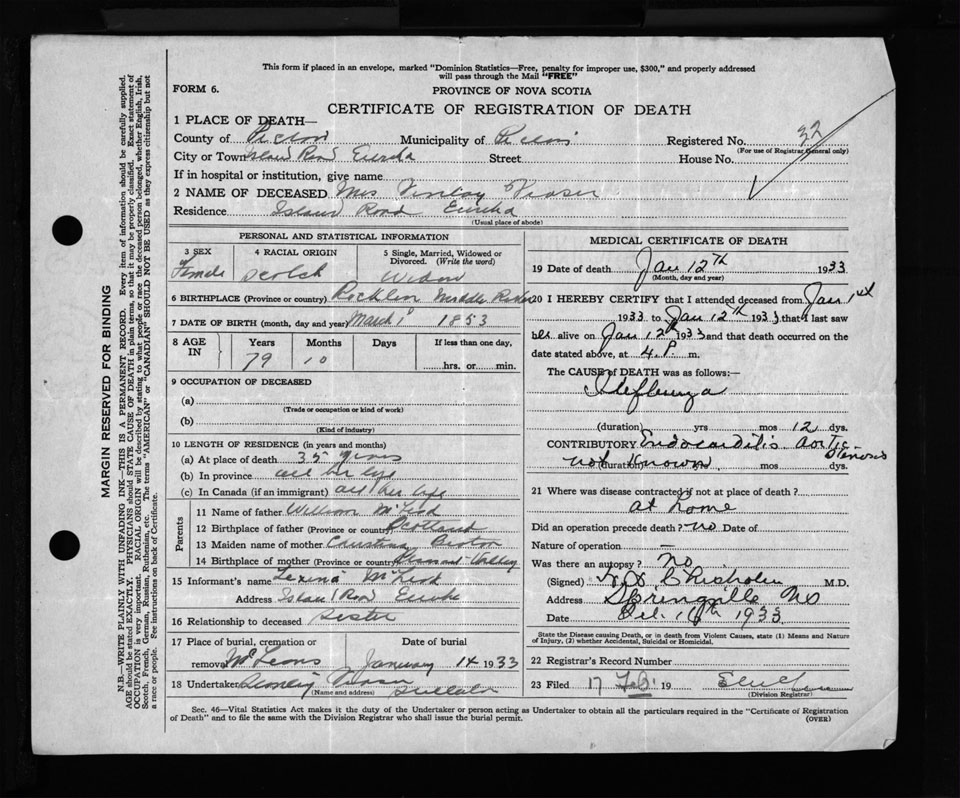 This form if placed in an envelope, marked "Dominion Statistics—Free, penalty for improper use, $300," and properly addressed
will pass through the Mail "FREE"
FORM 6.
PROVINCE OF NOVA SCOTIA
CERTIFICATE OF REGISTRATION OF DEATH
1 PLACE OF DEATH—
County of Pictou Municipality of Pictou Registered No. 32
(For use of Registrar General only)
City or Town Island Road Eureka Street House No.
If in hospital or institution, give name
2 NAME OF DECEASED Mrs Finlay Fraser
Residence Island Road Eureka
(Usual place of abode)
PERSONAL AND STATISTICAL INFORMATION
3 SEX 4 RACIAL ORIGIN 5 Single, Married, Widowed or Divorced. (Write the word)
Female Scotch Widow
6 BIRTHPLACE (Province or country) Rocklin Middle River
7 DATE OF BIRTH (month, day and year) March 1853
8 AGE IN Years Months Days If less than one day,
79 10 hrs. or min.
9 OCCUPATION OF DECEASED
(a)
(Trade or occupation or kind of work)
(b)
(Kind of industry)
10 LENGTH OF RESIDENCE (in years and months)
(a) At place of death 35 years
(b) In province all her life
(c) In Canada (if an immigrant) all her life
Parents
11 Name of father William McLeod
12 Birthplace of father (Province or country) Scotland
13 Maiden name of mother
14 Birthplace of mother (Province or country) Pleasant Valley
15 Informant's name Lexina McLeod
Address Island Road Eureka
16 Relationship to deceased Sister
17 Place of burial, cremation or Date of burial
removal January 14 1933
18 Undertaker Fraser
(Name and address)
MEDICAL CERTIFICATE OF DEATH
19 Date of death Jan 12th 1933
(Month, day and year)
20 I HEREBY CERTIFY that I attended deceased from Jan 1st
1933 to Jan 12th 1933 that I last saw
her alive on Jan 12th 1933 and that death occurred on the
date stated above, at 4 P. m.
The CAUSE of DEATH was as follows:—
Influenza
(duration) yrs mos 12 dys.
CONTRIBUTORY Endocarditis Aortic Stenosis
not known (duration) mos dys.
21 Where was disease contracted if not at place of death?
at home
Did an operation precede death? no Date of
Nature of operation —
Was there an autopsy? no
(Signed) Chisholm M.D.
Address Springville NS
Date 1933
State the Disease causing Death, or in death from Violent Causes, state (1) Means and Nature
of Injury, (2) whether Accidental, Suicidal or Homicidal.
22 Registrar's Record Number
23 Filed 17 Feb. 19
(Division Registrar)
Sec. 46—Vital Statistics Act makes it the duty of the Undertaker or person acting as Undertaker to obtain all the particulars required in the "Certificate of Registration
of Death" and to file the same with the Division Registrar who shall issue the burial permit.
(OVER)
MARGIN RESERVED FOR BINDING
N.B.—WRITE PLAINLY WITH UNFADING INK—THIS IS A PERMANENT RECORD. Every item of information should be carefully supplied.
AGE should be stated EXACTLY. PHYSICIANS should STATE CAUSE OF DEATH in plain terms, so that it may be properly classified. Exact statement of
OCCUPATION is very important. RACIAL ORIGIN will be described by stating to what people or race the deceased person belonged, whether English, Irish,
Scotch, French, German, Russian, Ruthenian, etc. The terms "AMERICAN" or "CANADIAN" SHOULD NOT BE USED as they express citizenship but not
a race or people. See instructions on back of Certificate.